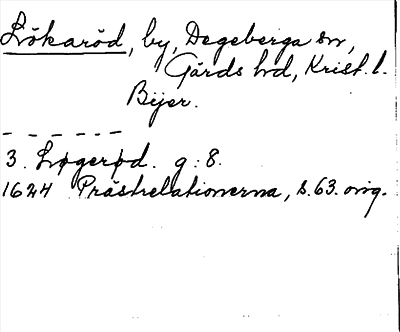 Lökaröd, by, Degeberga sn,
Gärds hd, Krist. l.
Bijer.
3. Løgerød. g: 8.
1624 Prästrelationerna, s. 63. orig.